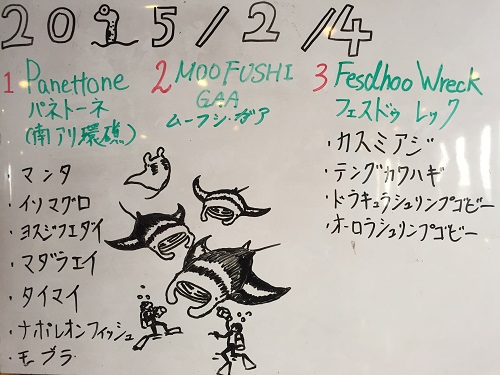 2015/2/4
1 Panettone
パネトーネ
(南アリ環礁)
・マンタ
・イソマグロ
・ヨスジフエダイ
・マダラエイ
・タイマイ
・ナポレオンフィッシュ
・モブラ
2 MOOFUSHI
GAA
ムーフシ・ガア
3 Fesdhoo Wreck
フェスドゥ レック
・カスミアジ
・テングカワハギ
・ドラキュラシュリンプゴビー
・オーロラシュリンプゴビー